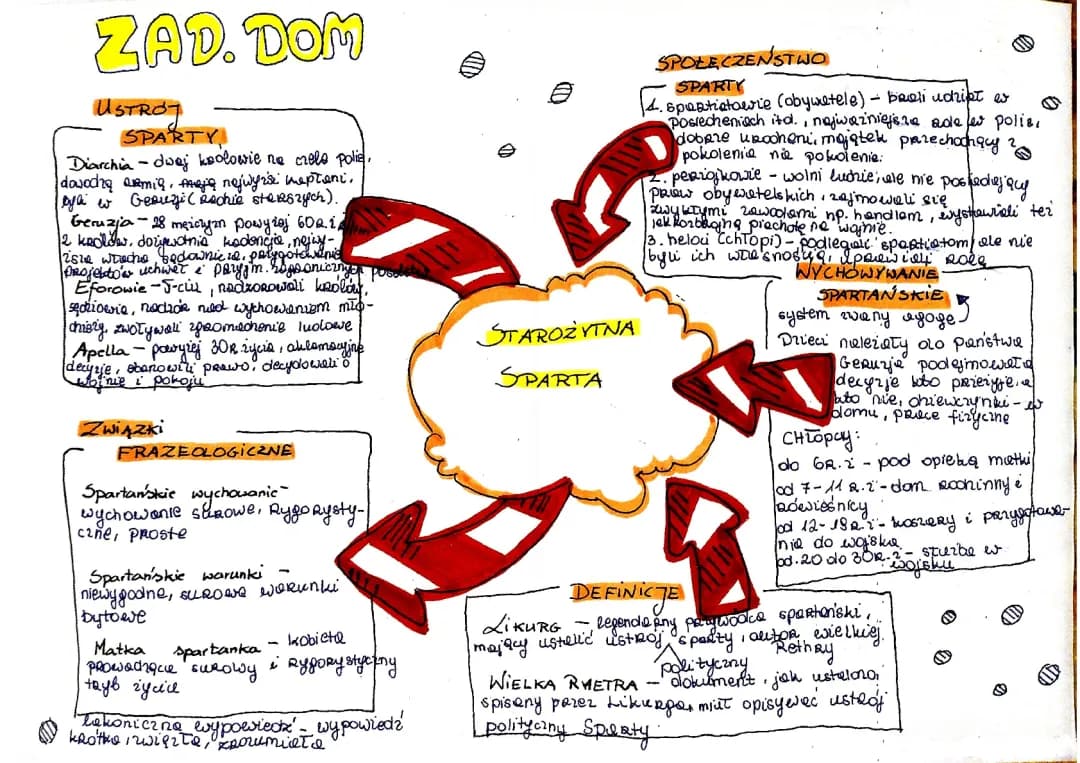 ZAD. DOM
USTRÓJ
SPARTY
Diarchia - dwaj królowie na czele polis,
dowodzą armią, mają najwyżsi kapłani,
byli w Geruzji (Radzie starszych).
Geruzja - 28 mężczyzn powyżej 60 R.ż i
2 królów, dożywotnia kadencja, najwy-
ższa władza sądownicza, przygotowanie
projektów uchwał i przyjm. zagranicznych posłów
Eforowie - 5-ciu, nadzorowali królów,
sędziowie, nadzór nad wychowaniem mło-
dzieży, zwoływali zgromadzenie ludowe
Apella - powyżej 30R. życia, aklamacyjne
decyzje, stanowili prawo, decydowali o
wojnie i pokoju
ZWIĄZKI
FRAZEOLOGICZNE
Spartańskie wychowanie -
wychowanie surowe, Rygorysty-
czne, proste
Spartańskie warunki -
niewygodne, surowe warunki
bytowe
Matka spartanka - kobieta
prowadząca surowy i Rygorystyczny
tryb życia
lakoniczna wypowiedź - wypowiedź
krótka, zwięzła, zrozumiała
STAROŻYTNA
SPARTA
SPOŁECZEŃSTWO
SPARTY
1. spartiatowie (obywatele) - brali udział w
posiedzeniach itd., najważniejsza rola w polis,
dobrze urodzeni, majątek przechodzący z
pokolenia na pokolenie.
2. periojkowie - wolni ludzie, ale nie posiadający
praw obywatelskich, zajmowali się
zwykłymi zawodami np. handlem, wystawiali też
piechotę na wojnie.
3. heloci (chłopi) - podlegali spartiatom, ale nie
byli ich własnością, uprawiali rolę
WYCHOWYWANIE
SPARTAŃSKIE
system zwany agoge
Dzieci należały do państwa
Geruzja podejmowała
decyzje kto przeżyje, a
kto nie, dziewczynki - w
domu, prace fizyczne
CHŁOPCY:
do 6R.ż - pod opieką matki
od 7-11 R.ż - dom rodzinny i
rówieśnicy
od 12-19R.ż - koszary i przygotowa-
nie do wojska
od 20 do 30R.ż - służba w
wojsku
DEFINICJE
LIKURG - legendarny przywódca spartański,
mający ustalić ustrój Sparty, autor wielkiej
Rethry
polityczny
WIELKA RHETRA - dokument, jak ustalono,
spisany przez Likurga, miał opisywać ustrój
polityczny Sparty.